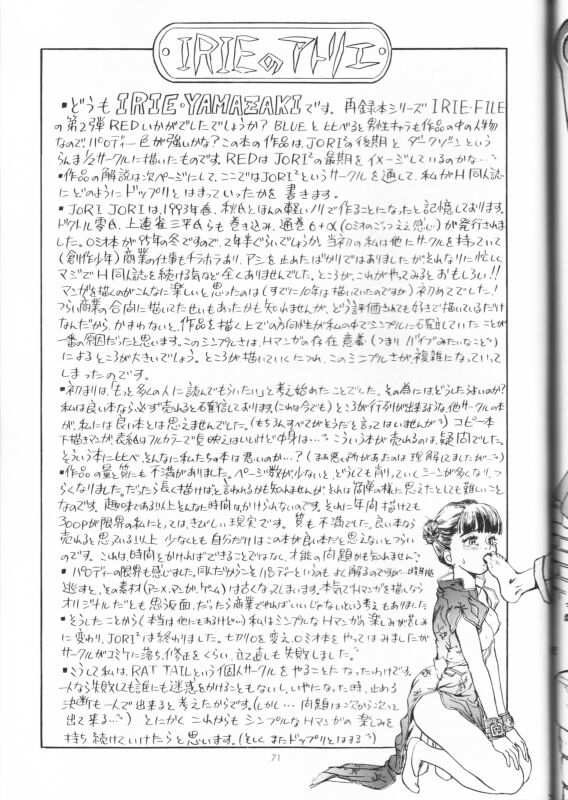 IRIEのアトリエ
▪どうも IRIE・YAMAZAKIです。再録本シリーズ IRIE-FILE
の第2弾 REDいかがでしたでしょうか? BLUEと比べると男性キャラも作品の中の人物
なのでパロディー色が強いかな?この本の作品は、JORI²の後期と ダークゾーンという
らんま½サークルに描いたものです。REDはJORI²の最期をイメージしているのかな…
▪作品の解説は次ページにして、ここではJORI²というサークルを通して、私がH同人誌
にどのようにドップリとはまっていったかを書きます。
▪JORI JORIは、1993年春、 とほんの軽いノリで作ることになったと記憶しております。
ドクトル零氏、上連雀三平氏らも巻き込み、通巻6+α(ロミオのごっつええ感じ)が発行されました
ました。ロミオ本が95年の冬ですので、2年半ぐらいでしょうか、当初の私は他にサークルを持っていて
(創作少年)商業の仕事もチラホラあり、アシを止めたばかりではありましたがそれなりに忙しく
マジでH同人誌を続ける気など全くありませんでした。ところが、これがやってみるとおもしろい!!
マンガを描くのがこんなに楽しいと思ったのは(すでに10年は描いていたのですが)初めてでした!
つらい商業の合間に描いてたせいもあったかも知れませんが、どう評価されても好きで描いているだけ
なんだから、かまわないと、作品を描く上での方向性が私の中でシンプルに確立していたことが
一番の原因だったと思います。このシンプルさは、Hマンガの存在意義(つまりバイブみたいなこと)
によるところが大きいでしょう。ところが描いていくにつれ、このシンプルさが複雑になっていって
しまったのです。
▪初まりは、「もっと多くの人に読んでもらいたい」と考え始めたことでした。その為にはどうしたらよいのか?
私は良い本なら必ず売れると確信しております(これは今でも)ところが行列が出来るような他サークルの本
が、私には良い本とは思えませんでした。(もちろんすべてがそうだと言ってはいませんが)コピー本
下描きマンガ、表紙はフルカラーで見映えはいいけど中身は…こういう本が売れるのは、疑問でした。
そういう本に比べ、そんなに私たちの本は悪いのか…?(まあ悪い所があったのは理解してましたが…)
▪作品の量と質にも不満がありました。ページ数が少ないと、どうしても削っていくシーンが多くなり、つ
らくなりました。だったら長く描けばと言われるかも知れませんが、それは簡単の様に思えたとしても難しいこと
なのです。趣味である以上そんなに時間はかけられないのです。それに年間描けても
300Pが限界の私にとっては、きびしい現実です。質も不満でした。良い本なら
売れると思っている以上、少なくとも自分だけはこの本が良い本だと思えないとつらい
のです。これは、時間をかければできることではなく、才能の問題かも知れません?
▪パロディーの限界も感じました。同人だけウケることパロディーというのもよく解るのですが…時期
逃すと、その素材(アニメ、マンガ、ゲーム)は古くなってしまいます。本気でHマンガを描くなら
オリジナルだとも思う反面、だったら商業でやればいいじゃないという考えもありました
▪そうしたことから(本当は他にもあるけど〜)私はシンプルなHマンガが、楽しみが苦しみ
に変わり、JORI²は終わりました。七カリロを変え、ロミオ本をやってはみましたが
サークルがコミケに落ち、修正をくらい、立て直しも失敗しました。
▪こうして私は、RAT TAILという個人サークルをやることになったわけです。
一人なら失敗しても誰にも迷惑をかけることもないし、いやになった時、止める
決断も一人で出来ると考えたからです。(しかし…問題は次から次へと
出て来る…)とにかくこれからもシンプルなHマンガの楽しみを
持ち続けていけたらと思います。(といい またドップリとはまる)
71